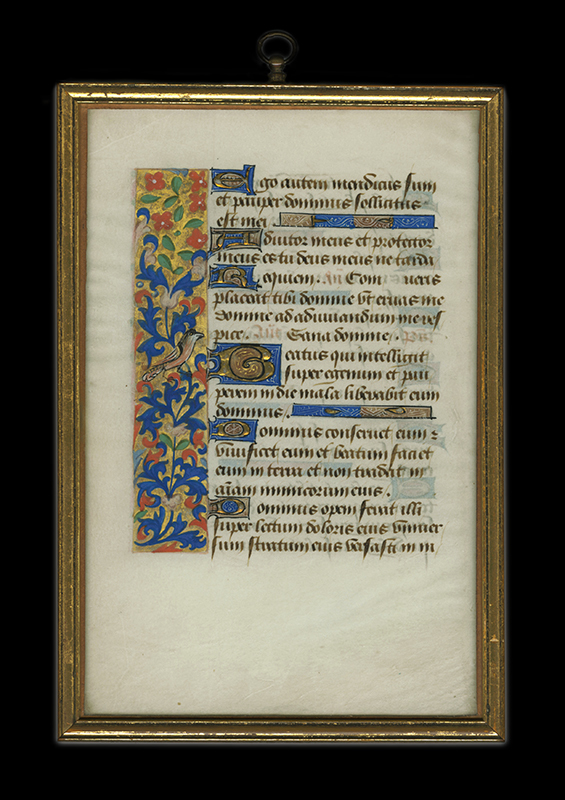 Ego autem mendicus sum
et pauper dominus sollicitus
est mei
Adiutor meus et protector
meus es tu deus meus ne tarda
Requiem. Añ Com
placeat tibi domine vt eruas me
domine ad adiuuandum me res
pice. Añ Sana domine. Ps
Beatus qui intelligit
super egenum et pau
perem in die mala liberabit eum
dominus.
Dominus conseruet eum et
viuificet eum et beatum faciet
eum in terra et non tradet in
aīam inimicorum eius.
Dominus opem ferat illi
super lectum doloris eius vniuer
sum stratum eius versasti in in